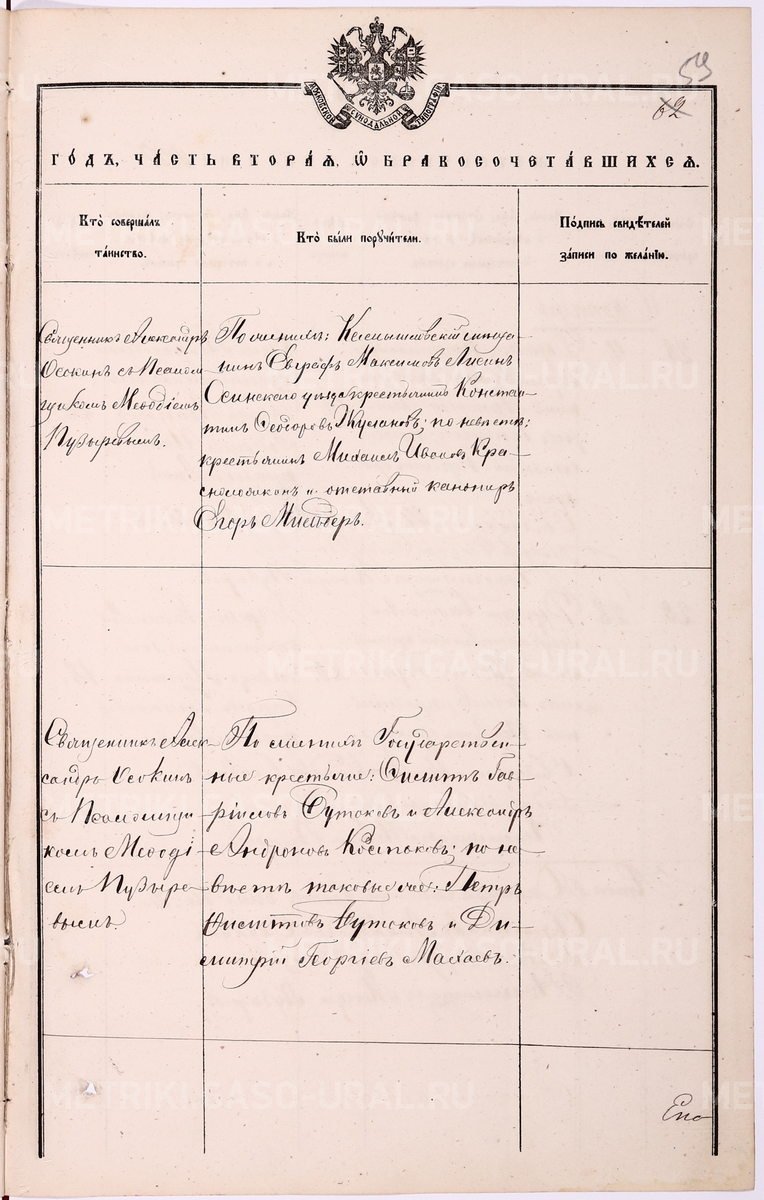 59
62
МОСКОВСКОЙ СУНОДАЛЬНОЙ ТИПОГРАФІИ
ГО́ДЪ, ЧА́СТЬ ВТОРА́Я, Ѽ БРАКОСОЧЕТА́ВШИХСЯ.
Кто̀ соверша́лъ
та́инство.
Кто̀ бы́ли поручи́тели.
По́дпись свидѣ́телей
за́писи по жела́нію.
Священникъ Александръ
Осокинъ съ Псалом
щикомъ Меѳодіемъ
Пузыревымъ.
По женихѣ: Камышловскій мѣща-
нинъ Евграфъ Максимовъ
Осинскаго уѣзда крестьянинъ Констан-
тинъ Ѳеодоровъ по невѣстѣ:
крестьянинъ Михаилъ Ивановъ Кра-
и отставной канониръ
Егоръ
Священникъ Алек-
сандръ Осокинъ
съ Псаломщи
комъ Меѳоді
емъ Пузыре
вымъ.
По женихѣ Государствен-
ные крестьяне: Филиппъ Гав-
риловъ Бутаковъ и Александръ
Андроновъ по не-
вѣстѣ таковые же: Петръ
Филипповъ Бутаковъ и Ди-
митрій Георгіевъ
METRIKI.GASO-URAL.RU